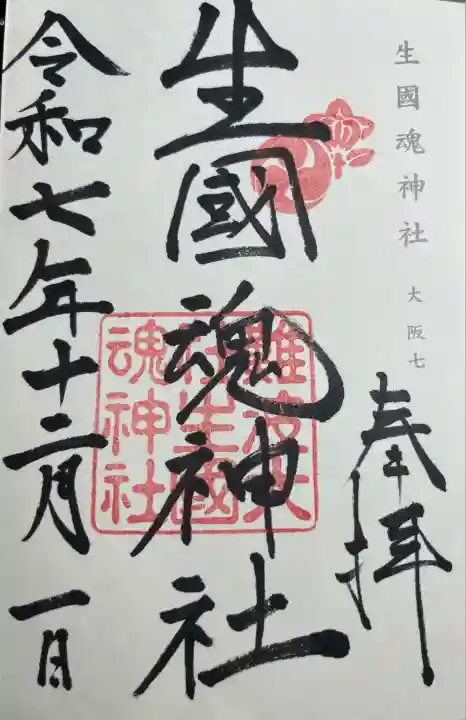 生國魂神社 大阪七
奉拝
生國魂神社
難波大
社生國
魂神社
令和七年十二月一日